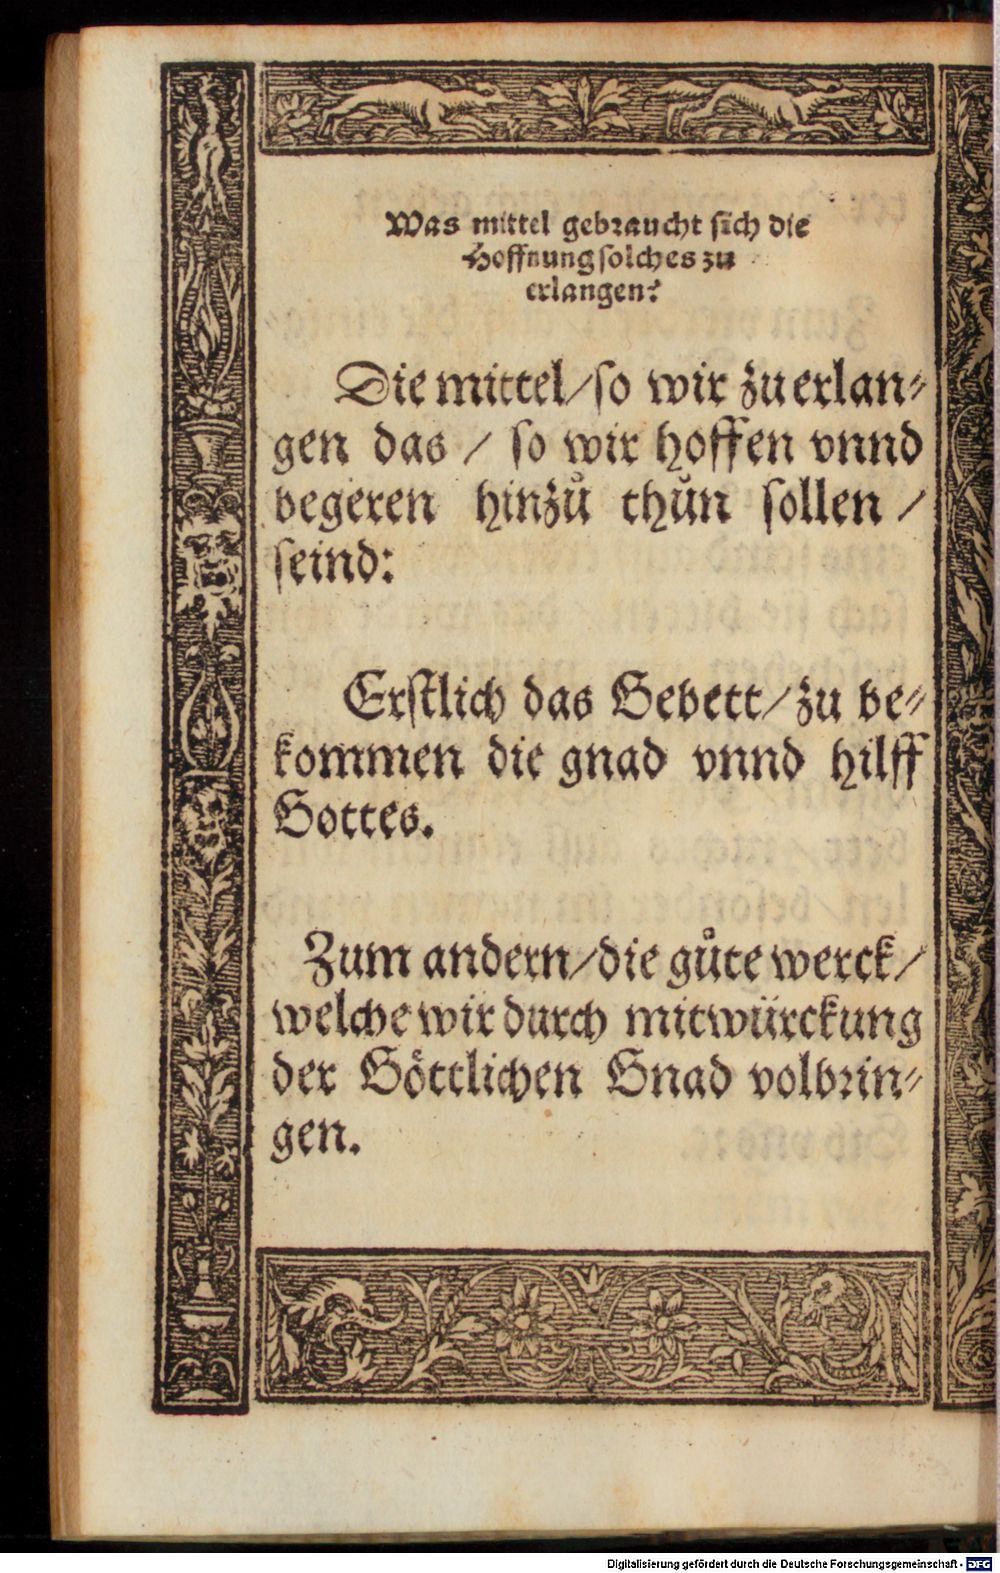 Was mittel gebraucht sich die
Hoffnung solches zu
erlangen?
Die mittel/so wir zu erlan⸗
gen das / so wir hoffen vnnd
begeren hinzů thůn sollen /
seind:
Erstlich das Gebett/zu be⸗
kommen die gnad vnnd hilff
Gottes.
Zum andern/die gůte werck/
welche wir durch mitwürckung
der Göttlichen Gnad volbrin⸗
gen.
Digitalisierung gefördert durch die Deutsche Forschungsgemeinschaft - DFG